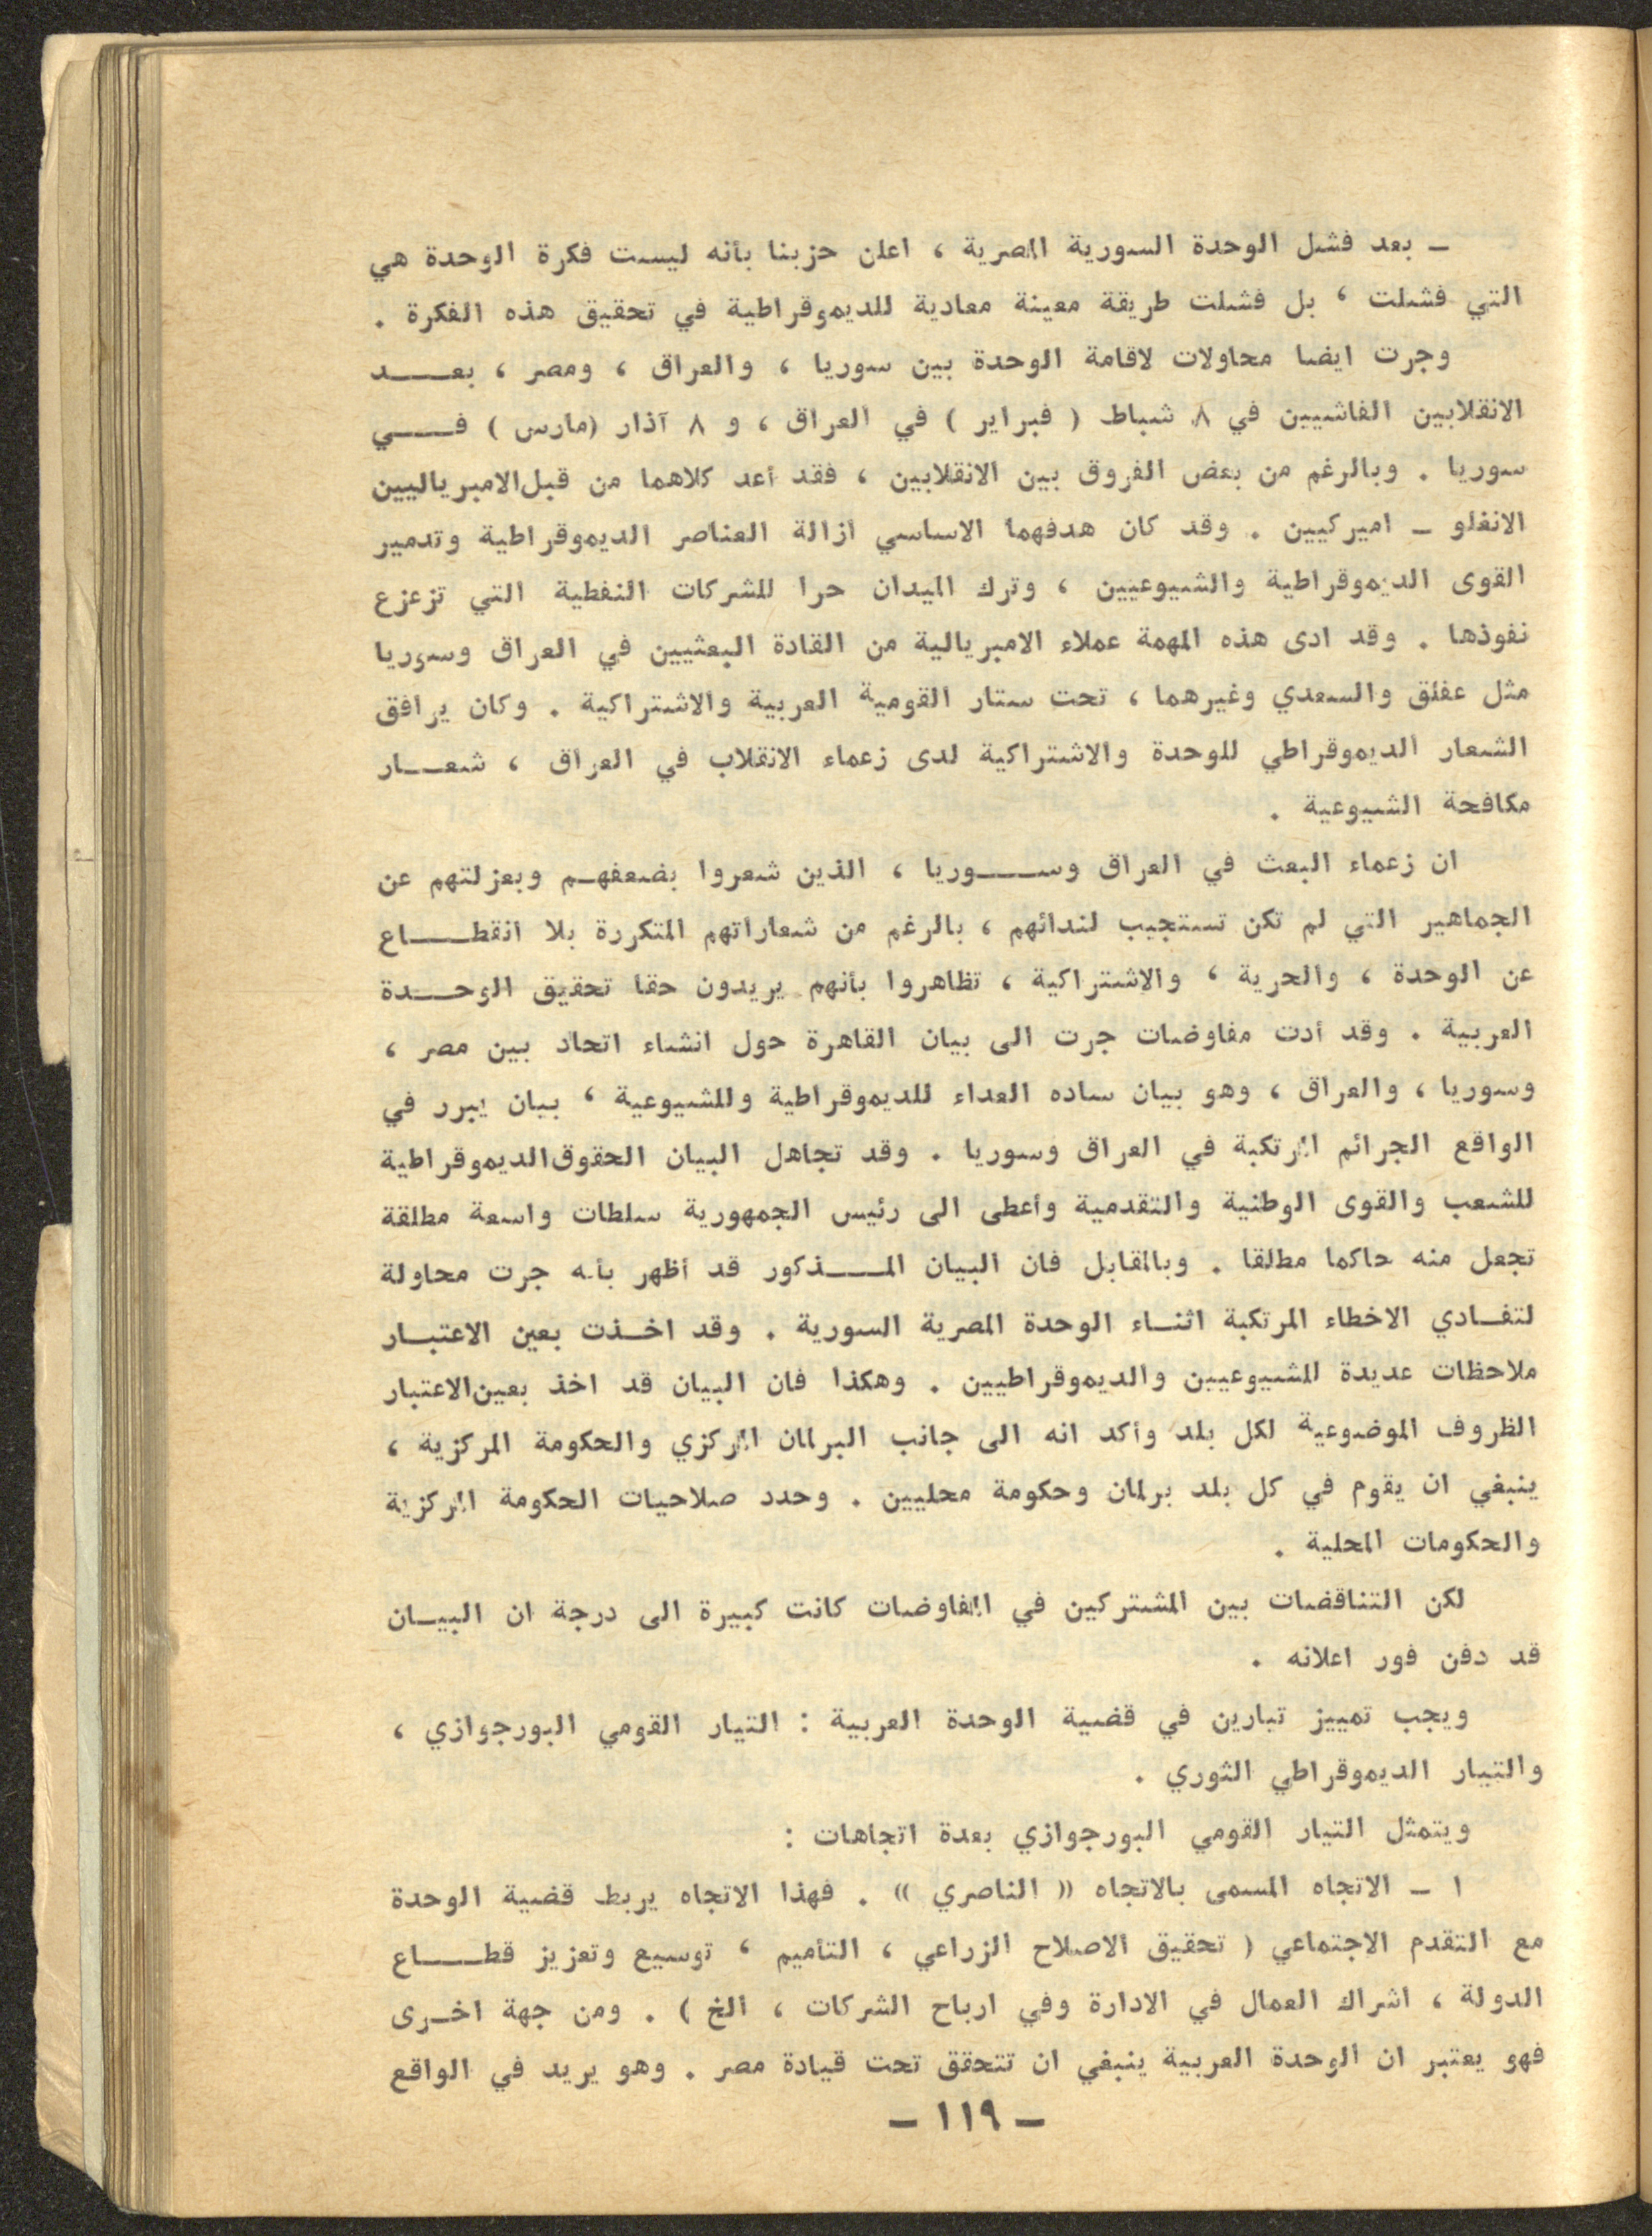 ـ بعد فشل الوحدة السورية المصرية ، اعلن حزبنا بأنه ليست فكرة الوحدة هي
التي فشلت ، بل فشلت طريقة معينة معادية للديموقراطية في تحقيق هذه الفكرة .
وجرت ايضا محاولات لاقامة الوحدة بين سوريا ، والعراق ، ومصر ، بعـــد
الانقلابين الفاشيين في ٨ شباط ( فبراير ) في العراق ، و ٨ آذار (مارس ) فـــي
سوريا . وبالرغم من بعض الفروق بين الانقلابين ، فقد أعد كلاهما من قبل الامبرياليين
الانغلو ـ اميركيين . وقد كان هدفهما الاساسي ازالة العناصر الديموقراطية وتدمير
القوى الديموقراطية والشيوعيين ، وترك الميدان حرا للشركات النفطية التي تزعزع
نفوذها . وقد ادى هذه المهمة عملاء الامبريالية من القادة البعثيين في العراق وسوريا
مثل عفلق والسعدي وغيرهما ، تحت ستار القومية العربية والاشتراكية . وكان يرافق
الشعار الديموقراطي للوحدة والاشتراكية لدى زعماء الانقلاب في العراق ، شعـــار
مكافحة الشيوعية .
ان زعماء البعث في العراق وســـوريا ، الذين شعروا بضعفهـم وبعزلتهم عن
الجماهير التي لم تكن تستجيب لندائهم ، بالرغم من شعاراتهم المتكررة بلا انقطـــاع
عن الوحدة ، والحرية ، والاشتراكية ، تظاهروا بأنهم يريدون حقا تحقيق الوحـــدة
العربية . وقد أدت مفاوضات جرت الى بيان القاهرة حول انشاء اتحاد بين مصر ،
وسوريا ، والعراق ، وهو بيان ساده العداء للديموقراطية وللشيوعية ، بيان يبرر في
الواقع الجرائم المرتكبة في العراق وسوريا . وقد تجاهل البيان الحقوق الديموقراطية
للشعب والقوى الوطنية والتقدمية وأعطى الى رئيس الجمهورية سلطات واسعة مطلقة
تجعل منه حاكما مطلقا . وبالمقابل فان البيان المـــذكور قد أظهر بأنه جرت محاولة
لتفـادي الاخطاء المرتكبة اثنـاء الوحدة المصرية السورية . وقد اخـذت بعين الاعتبـار
ملاحظات عديدة للشيوعيين والديموقراطيين . وهكذا فان البيان قد اخذ بعين الاعتبار
الظروف الموضوعية لكل بلد وأكد انه الى جانب البرلمان المركزي والحكومة المركزية ،
ينبغي ان يقوم في كل بلد برلمان وحكومة محليين . وحدد صلاحيات الحكومة المركزية
والحكومات المحلية .
لكن التناقضات بين المشتركين في المفاوضات كانت كبيرة الى درجة ان البيـان
قد دفن فور اعلانه .
ويجب تمييز تيارين في قضية الوحدة العربية : التيار القومي البورجوازي ،
والتيار الديموقراطي الثوري .
ويتمثل التيار القومي البورجوازي بعدة اتجاهات :
١ ـ الاتجاه المسمى بالاتجاه « الناصري » . فهذا الاتجاه يربط قضية الوحدة
مع التقدم الاجتماعي ( تحقيق الاصلاح الزراعي ، التأميم ، توسيع وتعزيز قطـــاع
الدولة ، اشراك العمال في الادارة وفي ارباح الشركات ، الخ ) . ومن جهة اخـرى
فهو يعتبر ان الوحدة العربية ينبغي ان تتحقق تحت قيادة مصر . وهو يريد في الواقع
ـ ١١٩ ـ